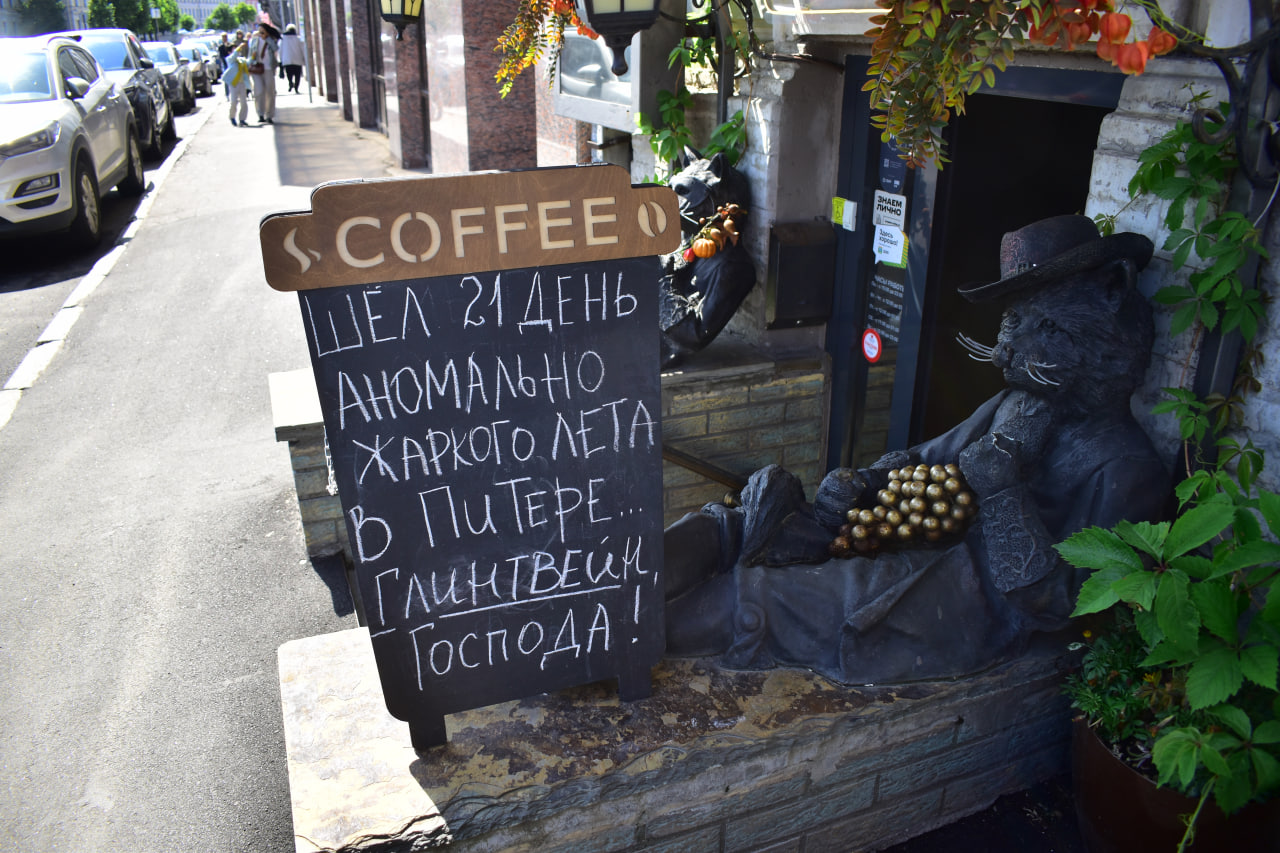 COFFEE
ШЁЛ 21 ДЕНЬ
АНОМАЛЬНО
ЖАРКОГО ЛЕТА
В ПИТЕРЕ...
ГЛИНТВЕЙН,
ГОСПОДА!
ЗНАЕМ
ЛИЧНО
Здесь
хорошо!